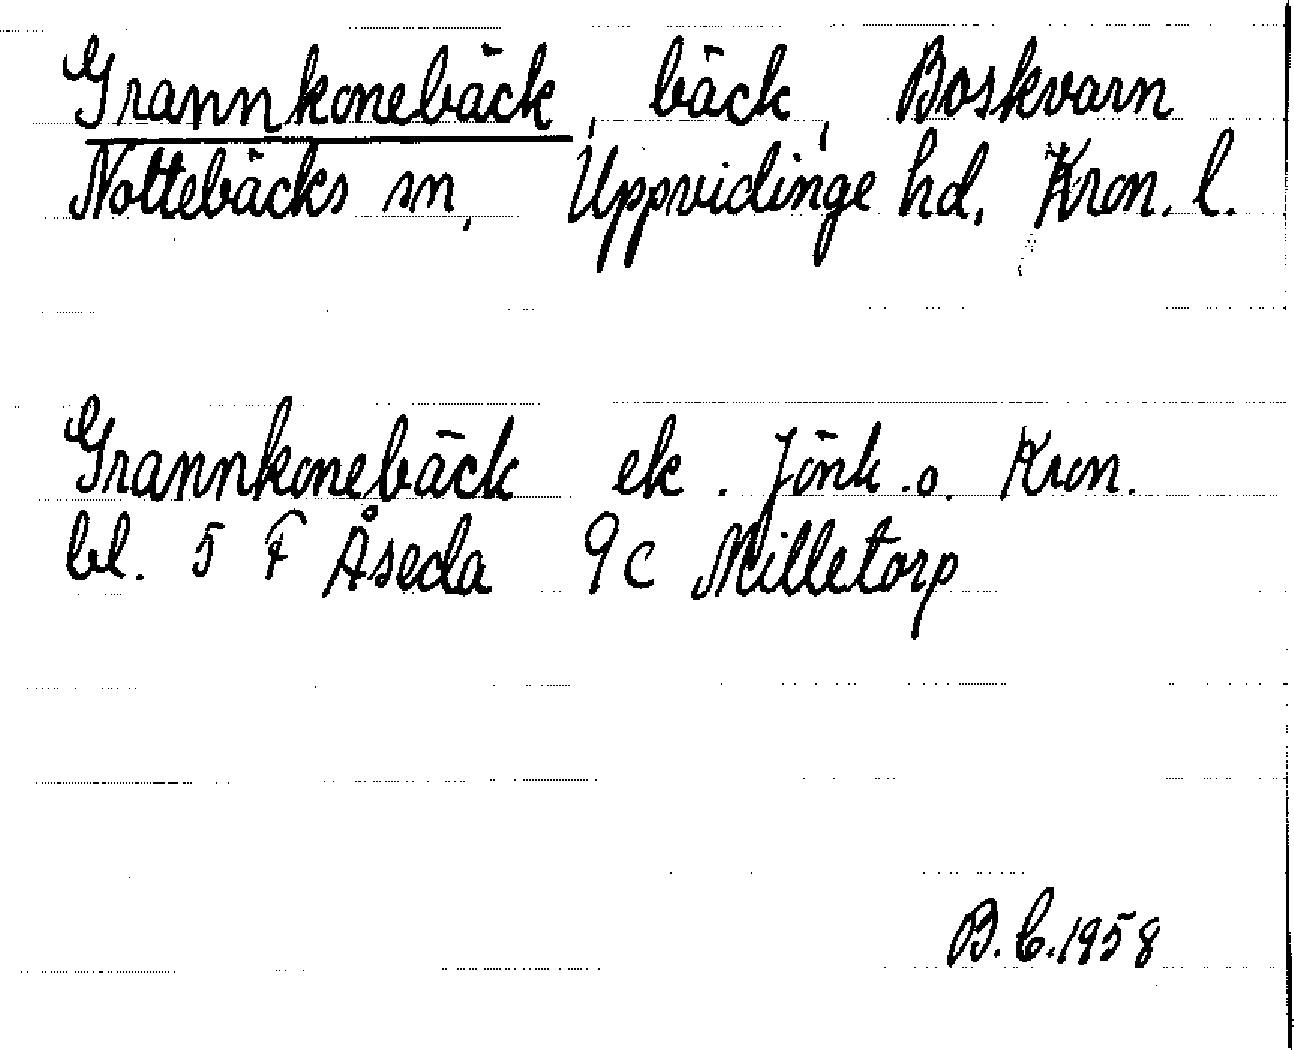 Grannkonebäck, bäck, Boskvarn
Nottebäcks sn, Uppvidinge hd, Kron. l.
Grannkonebäck ek. Jönk. o. Kron.
bl. 5 F Åseda 9 c Milletorp
B. C. 1958